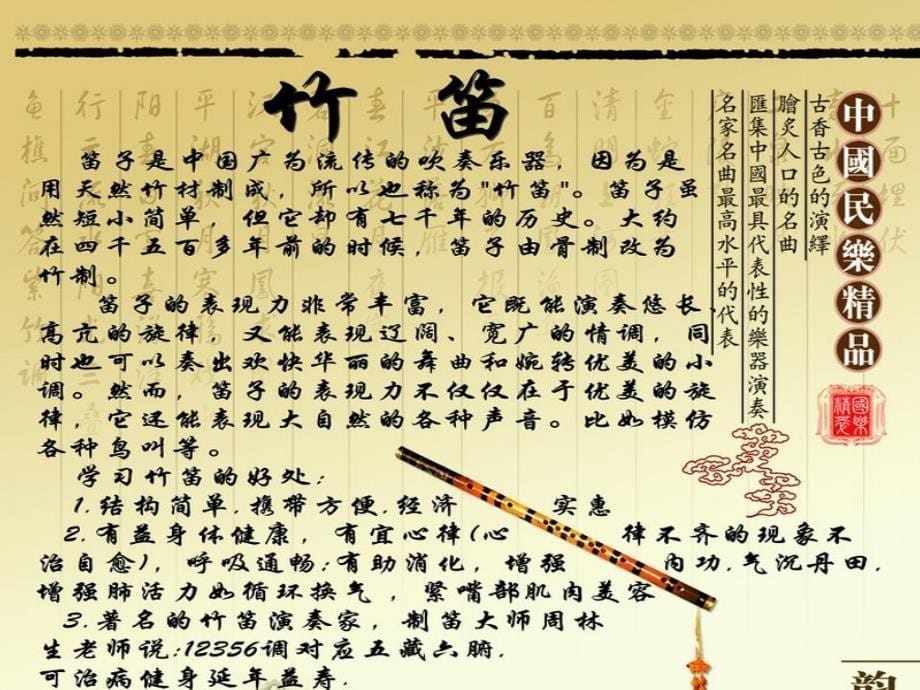 竹 笛
笛子是中国广为流传的吹奏乐器，因为是
用天然竹材制成，所以也称为"竹笛"。笛子虽
然短小简单，但它却有七千年的历史。大约
在四千五百多年前的时候，笛子由骨制改为
竹制。
笛子的表现力非常丰富，它既能演奏悠长、
高亢的旋律，又能表现辽阔、宽广的情调，同
时也可以奏出欢快华丽的舞曲和婉转优美的小
调。然而，笛子的表现力不仅仅在于优美的旋
律，它还能表现大自然的各种声音。比如模仿
各种鸟叫等。
学习竹笛的好处：
1.结构简单.携带方便.经济 实惠
2.有益身体健康，有宜心律(心 律不齐的现象不
治自愈)，呼吸通畅;有助消化，增强 内功.气沉丹田.
增强肺活力如循环换气，紧嘴部肌肉美容
3.著名的竹笛演奏家，制笛大师周林
生老师说:12356调对应五藏六腑.
可治病健身延年益寿.
中國民樂精品
古香古色的演繹
膾炙人口的名曲
匯集中國最具代表性的樂器演奏
名家名曲最高水平的代表
國樂
精萃
韵